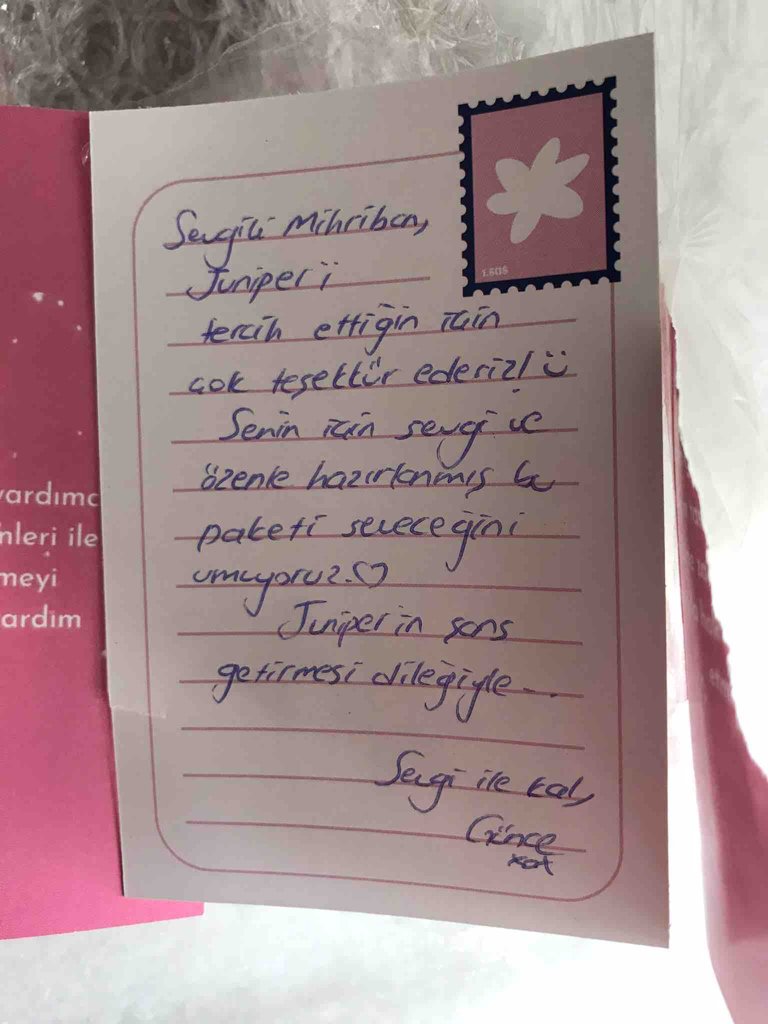 Sevgili Mihriban,
Juniper'ı
tercih ettiğin için
çok teşekkür ederiz! ü
Senin için sevgi ve
özenle hazırlanmış bu
paketi seveceğini
umuyoruz.♡
Juniper'in şans
getirmesi dileğiyle...
Sevgi ile kal,
Günce
yardımc
nleri ile
meyi
ardım